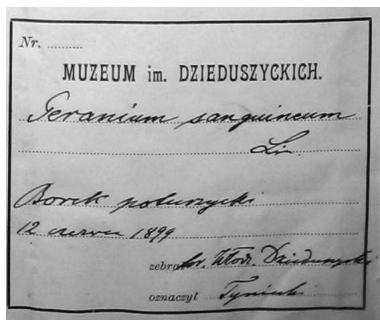 Nr. ..........
MUZEUM im. DZIEDUSZYCKICH.
Geranium sanguineum
Lin.
Borek poturzycki
12 czerwca 1899
zebrał hr. Włodz. Dzieduszycki
oznaczył Tyniecki